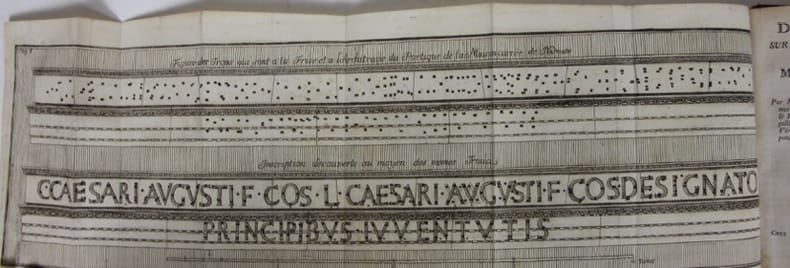 Figure des Trous qui sont a la Frise et a l'Architrave du Portique de la Maison carrée de Nismes
Inscription decouverte au moyen des memes Trous
C·CAESARI·AVGVSTI·F·COS·L·CAESARI·AVGVSTI·F·COS·DESIGNATO
PRINCIPIBVS·IVVENTVTIS
D
SUR
M
Par M